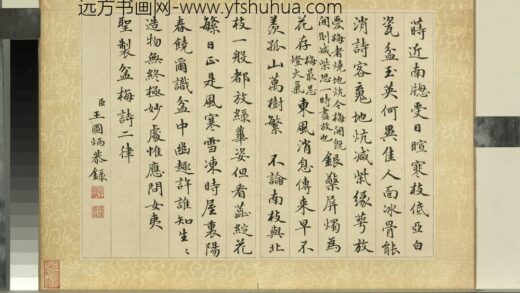 远方书画网-www.yfshuhua.com
蒔近南牕受日暄寒枝低亞白
瓷盆玉英何異佳人面冰骨能
消詩客魂地炕減柴緣萼放
愛梅者燒地炕令梅開
開則減柴恐一時盡放也
銀檠屏燭為
花存
梅最忌
燈火氣
東風消息傳來早不
羨孤山萬樹繁 不論南枝與北
枝一般都放綠萼姿但看蕊綻花
繁日正是風寒雪凍時屋裏陽
春饒爾識盆中幽趣許誰知生〻
造物無終極妙處惟應問女夷
聖製盆梅詩二律
臣王圖炳恭錄